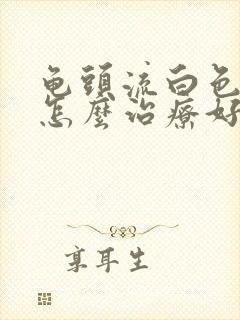 龟頭流白色
怎麽治療好
享耳生